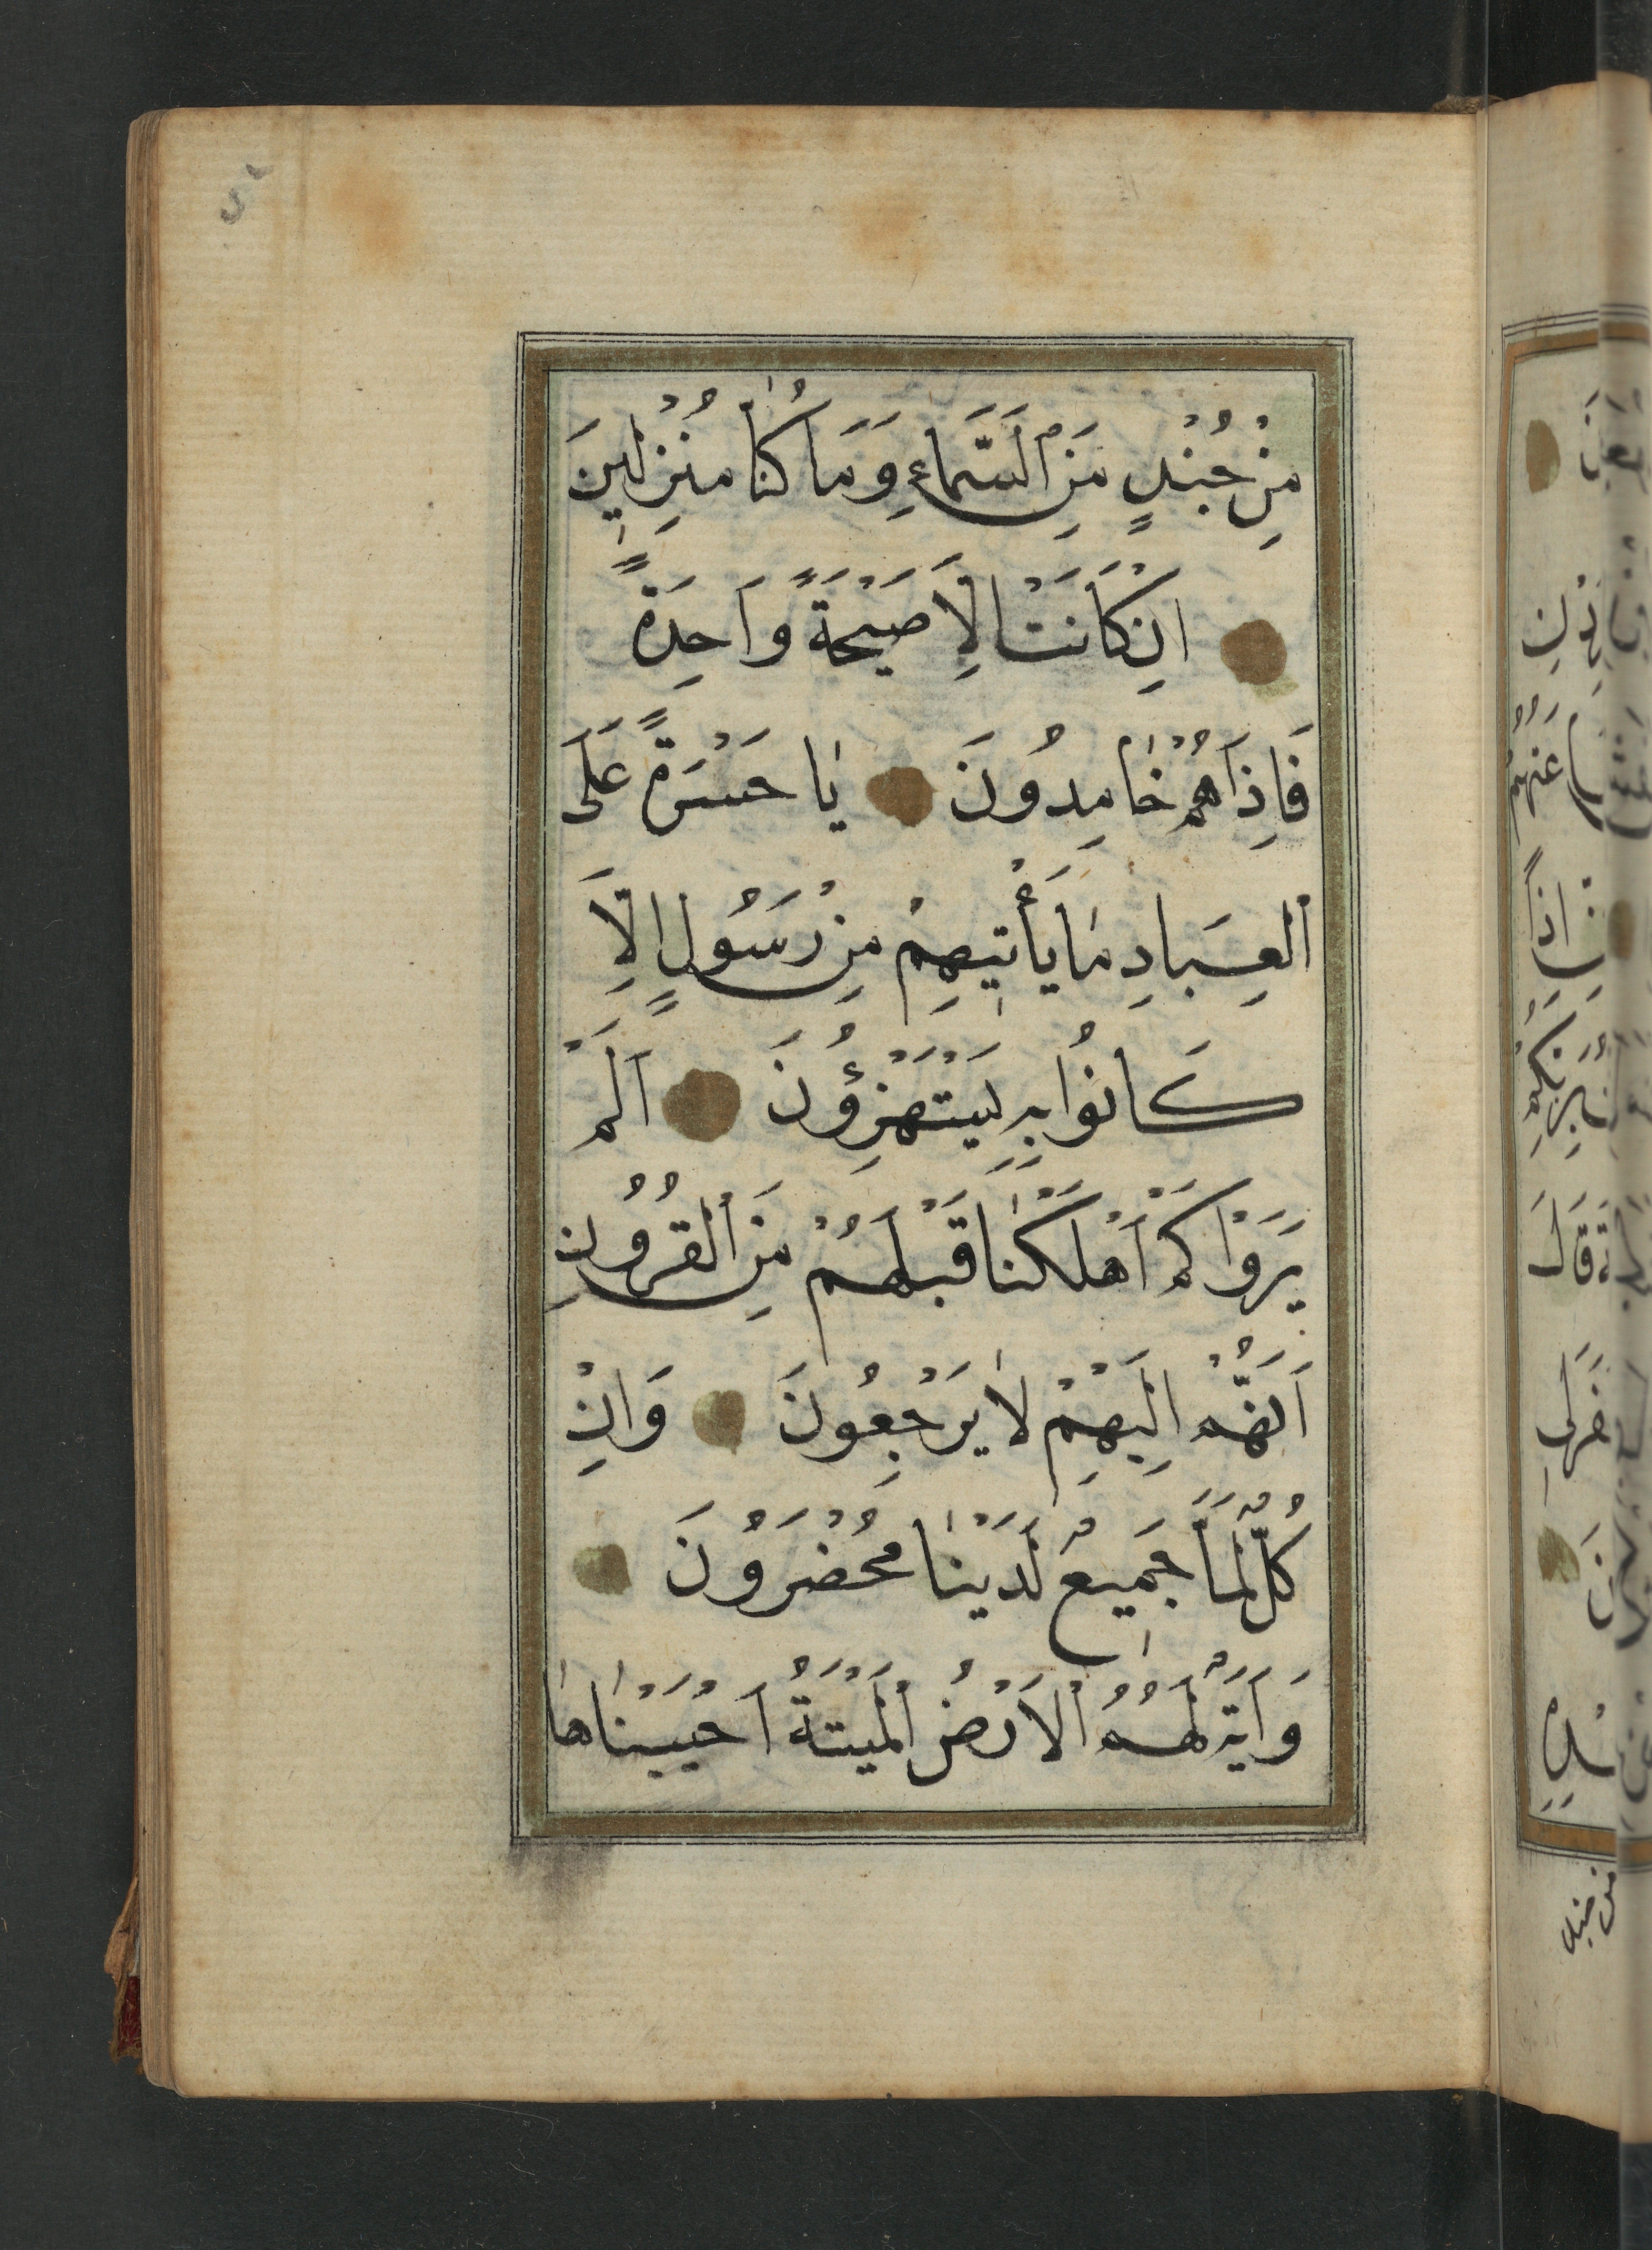 مِنْ جُنْدٍ مِنَ السَّمَاءِ وَمَا كُنَّا مُنْزِلِينَ
اِنْ كَانَتْ اِلَّا صَيْحَةً وَاحِدَةً
فَاِذَا هُمْ خَامِدُونَ يَا حَسْرَةً عَلَى
الْعِبَادِ مَا يَأْتِيهِمْ مِنْ رَسُولٍ اِلَّا
كَانُوا بِهِ يَسْتَهْزِؤُنَ اَلَمْ
يَرَوْا كَمْ اَهْلَكْنَا قَبْلَهُمْ مِنَ الْقُرُونِ
اَنَّهُمْ اِلَيْهِمْ لَا يَرْجِعُونَ وَاِنْ
كُلٌّ لَمَّا جَمِيعٌ لَدَيْنَا مُحْضَرُونَ
وَاٰيَةٌ لَهُمُ الْاَرْضُ الْمَيْتَةُ اَحْيَيْنَاهَا